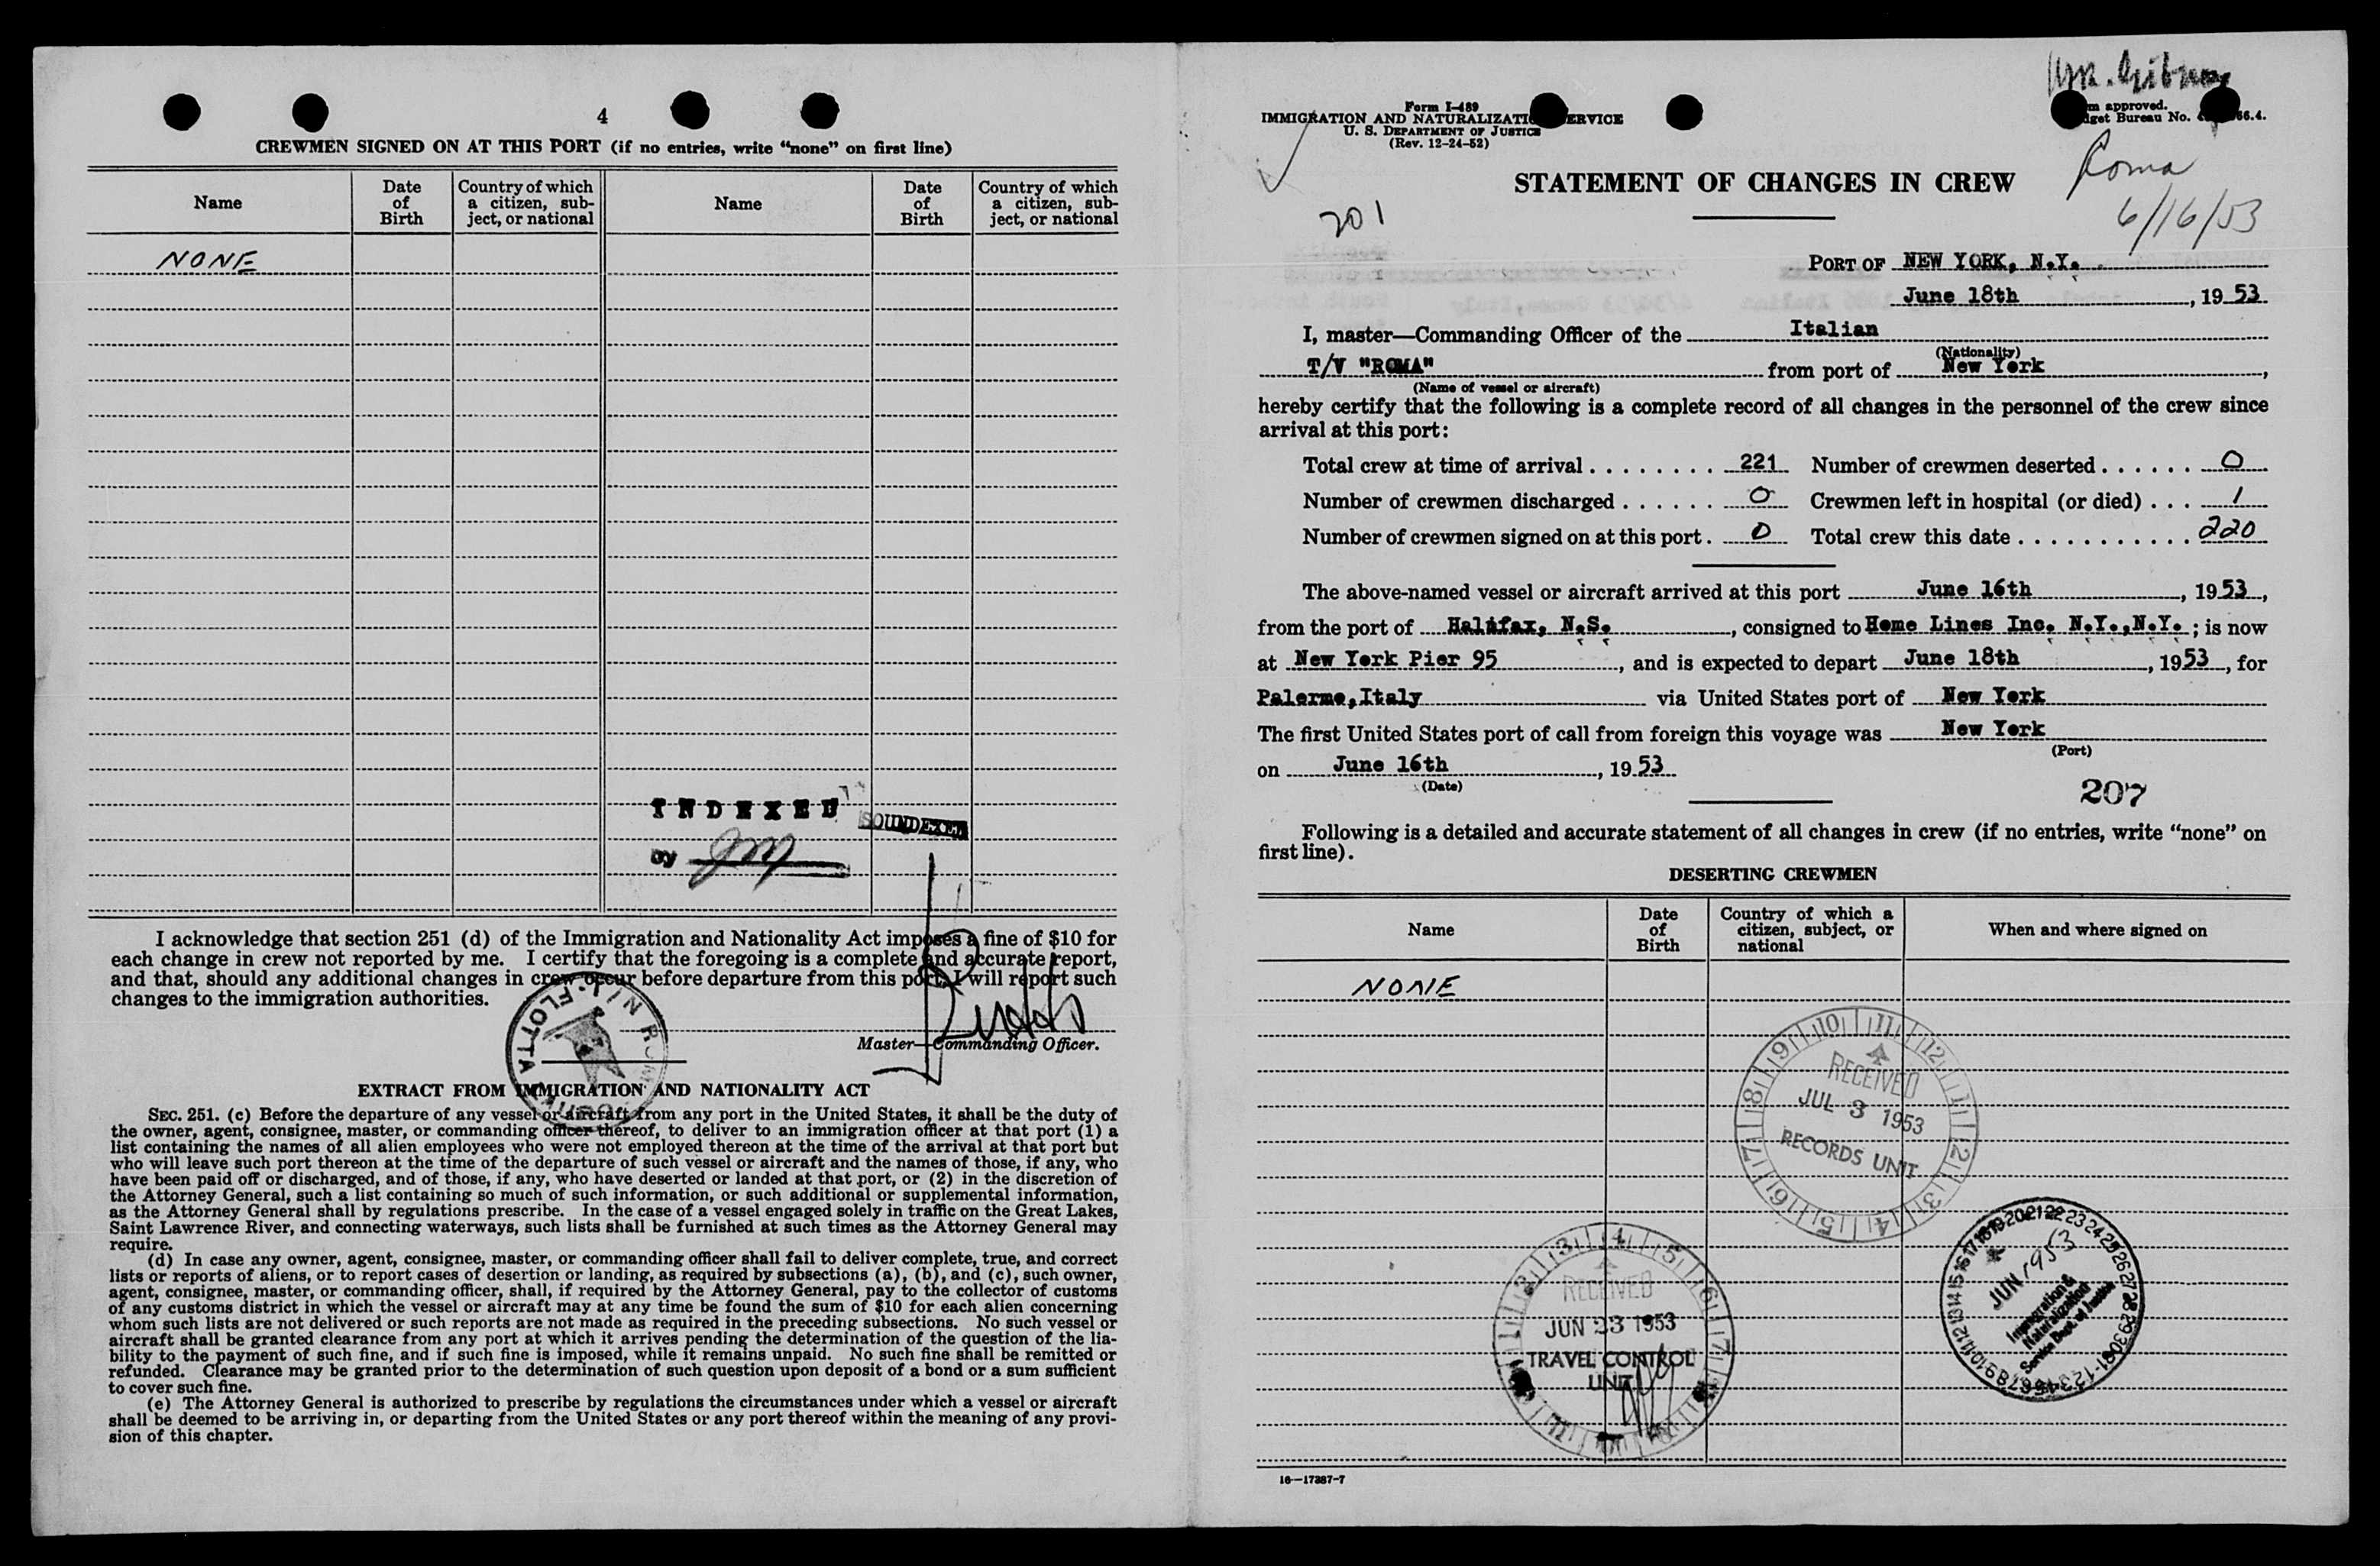 4
CREWMEN SIGNED ON AT THIS PORT (if no entries, write "none" on first line)
Name | Date of Birth | Country of which a citizen, subject, or national | Name | Date of Birth | Country of which a citizen, subject, or national
NONE
INDEXED
SOUNDEXED
by
I acknowledge that section 251 (d) of the Immigration and Nationality Act imposes a fine of $10 for
each change in crew not reported by me. I certify that the foregoing is a complete and accurate report,
and that, should any additional changes in crew occur before departure from this port, I will report such
changes to the immigration authorities.
FLOTTA
Master—Commanding Officer.
EXTRACT FROM IMMIGRATION AND NATIONALITY ACT
SEC. 251. (c) Before the departure of any vessel or aircraft from any port in the United States, it shall be the duty of
the owner, agent, consignee, master, or commanding officer thereof, to deliver to an immigration officer at that port (1) a
list containing the names of all alien employees who were not employed thereon at the time of the arrival at that port but
who will leave such port thereon at the time of the departure of such vessel or aircraft and the names of those, if any, who
have been paid off or discharged, and of those, if any, who have deserted or landed at that port, or (2) in the discretion of
the Attorney General, such a list containing so much of such information, or such additional or supplemental information,
as the Attorney General shall by regulations prescribe. In the case of a vessel engaged solely in traffic on the Great Lakes,
Saint Lawrence River, and connecting waterways, such lists shall be furnished at such times as the Attorney General may
require.
(d) In case any owner, agent, consignee, master, or commanding officer shall fail to deliver complete, true, and correct
lists or reports of aliens, or to report cases of desertion or landing, as required by subsections (a), (b), and (c), such owner,
agent, consignee, master, or commanding officer, shall, if required by the Attorney General, pay to the collector of customs
of any customs district in which the vessel or aircraft may at any time be found the sum of $10 for each alien concerning
whom such lists are not delivered or such reports are not made as required in the preceding subsections. No such vessel or
aircraft shall be granted clearance from any port at which it arrives pending the determination of the question of the lia-
bility to the payment of such fine, and if such fine is imposed, while it remains unpaid. No such fine shall be remitted or
refunded. Clearance may be granted prior to the determination of such question upon deposit of a bond or a sum sufficient
to cover such fine.
(e) The Attorney General is authorized to prescribe by regulations the circumstances under which a vessel or aircraft
shall be deemed to be arriving in, or departing from the United States or any port thereof within the meaning of any provi-
sion of this chapter.
Form I-489
IMMIGRATION AND NATURALIZATION SERVICE
U. S. DEPARTMENT OF JUSTICE
(Rev. 12-24-52)
approved.
Bureau No.
STATEMENT OF CHANGES IN CREW
Roma
6/16/53
201
PORT OF NEW YORK, N.Y.
June 18th, 1953
I, master—Commanding Officer of the Italian
(Nationality)
T/V "ROMA" from port of New York,
(Name of vessel or aircraft)
hereby certify that the following is a complete record of all changes in the personnel of the crew since
arrival at this port:
Total crew at time of arrival 221 Number of crewmen deserted 0
Number of crewmen discharged 0 Crewmen left in hospital (or died) 1
Number of crewmen signed on at this port 0 Total crew this date 220
The above-named vessel or aircraft arrived at this port June 16th, 1953,
from the port of Halifax, N.S., consigned to Home Lines Inc. N.Y.,N.Y.; is now
at New York Pier 95, and is expected to depart June 18th, 1953, for
Palermo,Italy via United States port of New York
The first United States port of call from foreign this voyage was New York
(Port)
on June 16th, 1953
(Date)
207
Following is a detailed and accurate statement of all changes in crew (if no entries, write "none" on
first line).
DESERTING CREWMEN
Name | Date of Birth | Country of which a citizen, subject, or national | When and where signed on
NONE
RECEIVED
JUL 3 1953
RECORDS UNIT
RECEIVED
JUN 23 1953
TRAVEL CONTROL
UNIT
JUN 1953
Immigration &
Naturalization
Service Dept. of Justice
16—17387-7